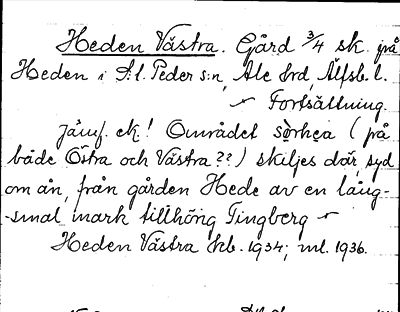 Heden Västra. Gård 3/4 sk. på
Heden i St. Peders:n, Ale hrd, Älfsb. l.
~ Fortsättning.
Jämf. ek! Området (på
både Östra och Västra??) skiljes där, syd
om ån, från gården Hede av en lång-
-smal mark tillhörig Tingberg ~
Heden Västra Jrb. 1934; ml. 1936.